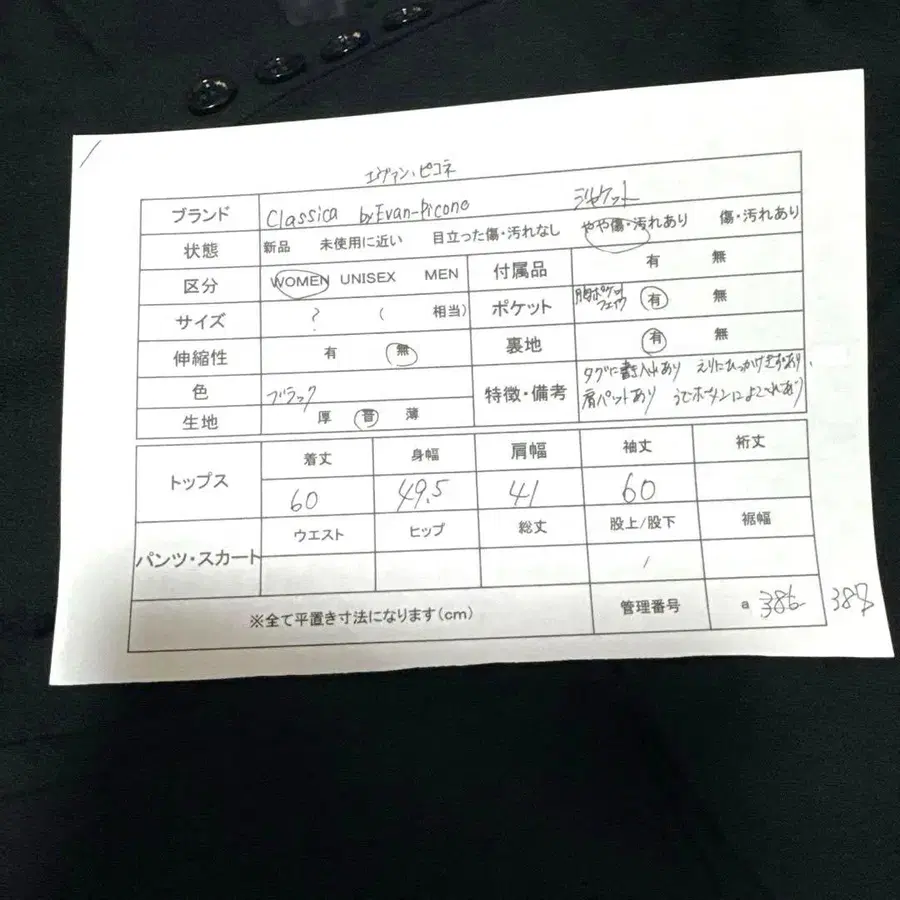 エヴァン、ピコネ
ブランド Classica by Evan-Picone ジャケット
状態 新品 未使用に近い 目立った傷・汚れなし やや傷・汚れあり 傷・汚れあり
区分 WOMEN UNISEX MEN 付属品 有 無
サイズ ? ( 相当) ポケット 胸ポケット フェイク 有 無
伸縮性 有 無 裏地 有 無
色 ブラック 特徴・備考 タグに書き入れあり えりにひっかけきずあり、
生地 厚 普 薄 肩パットあり うでボタンによごれあり
トップス 着丈 身幅 肩幅 袖丈 裄丈
60 49.5 41 60
パンツ・スカート ウエスト ヒップ 総丈 股上/股下 裾幅
/
※全て平置き寸法になります(cm) 管理番号 a 386 387